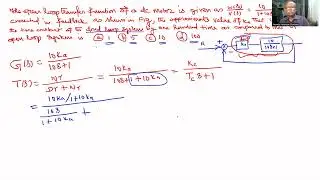 The open loop transfer function of a dc motor is given as ω(s)/Va(s) = 10/(1+10s)
connected in feedback as shown in Fig, the approximate value of Ka that
the time constant of closed loop system by one hundred times as compared to that of
open loop system is (a) 1 (b) 5 (c) 10 (d) 100
G(s) = 10Ka/(10s+1)
T(s) = Nr/(Dr+Nr) = 10Ka/(10s+1+10Ka) = Kc/(Tc s+1)
= (10Ka/1+10Ka)/(10s/(1+10Ka) +
R Ka 10/(10s+1)